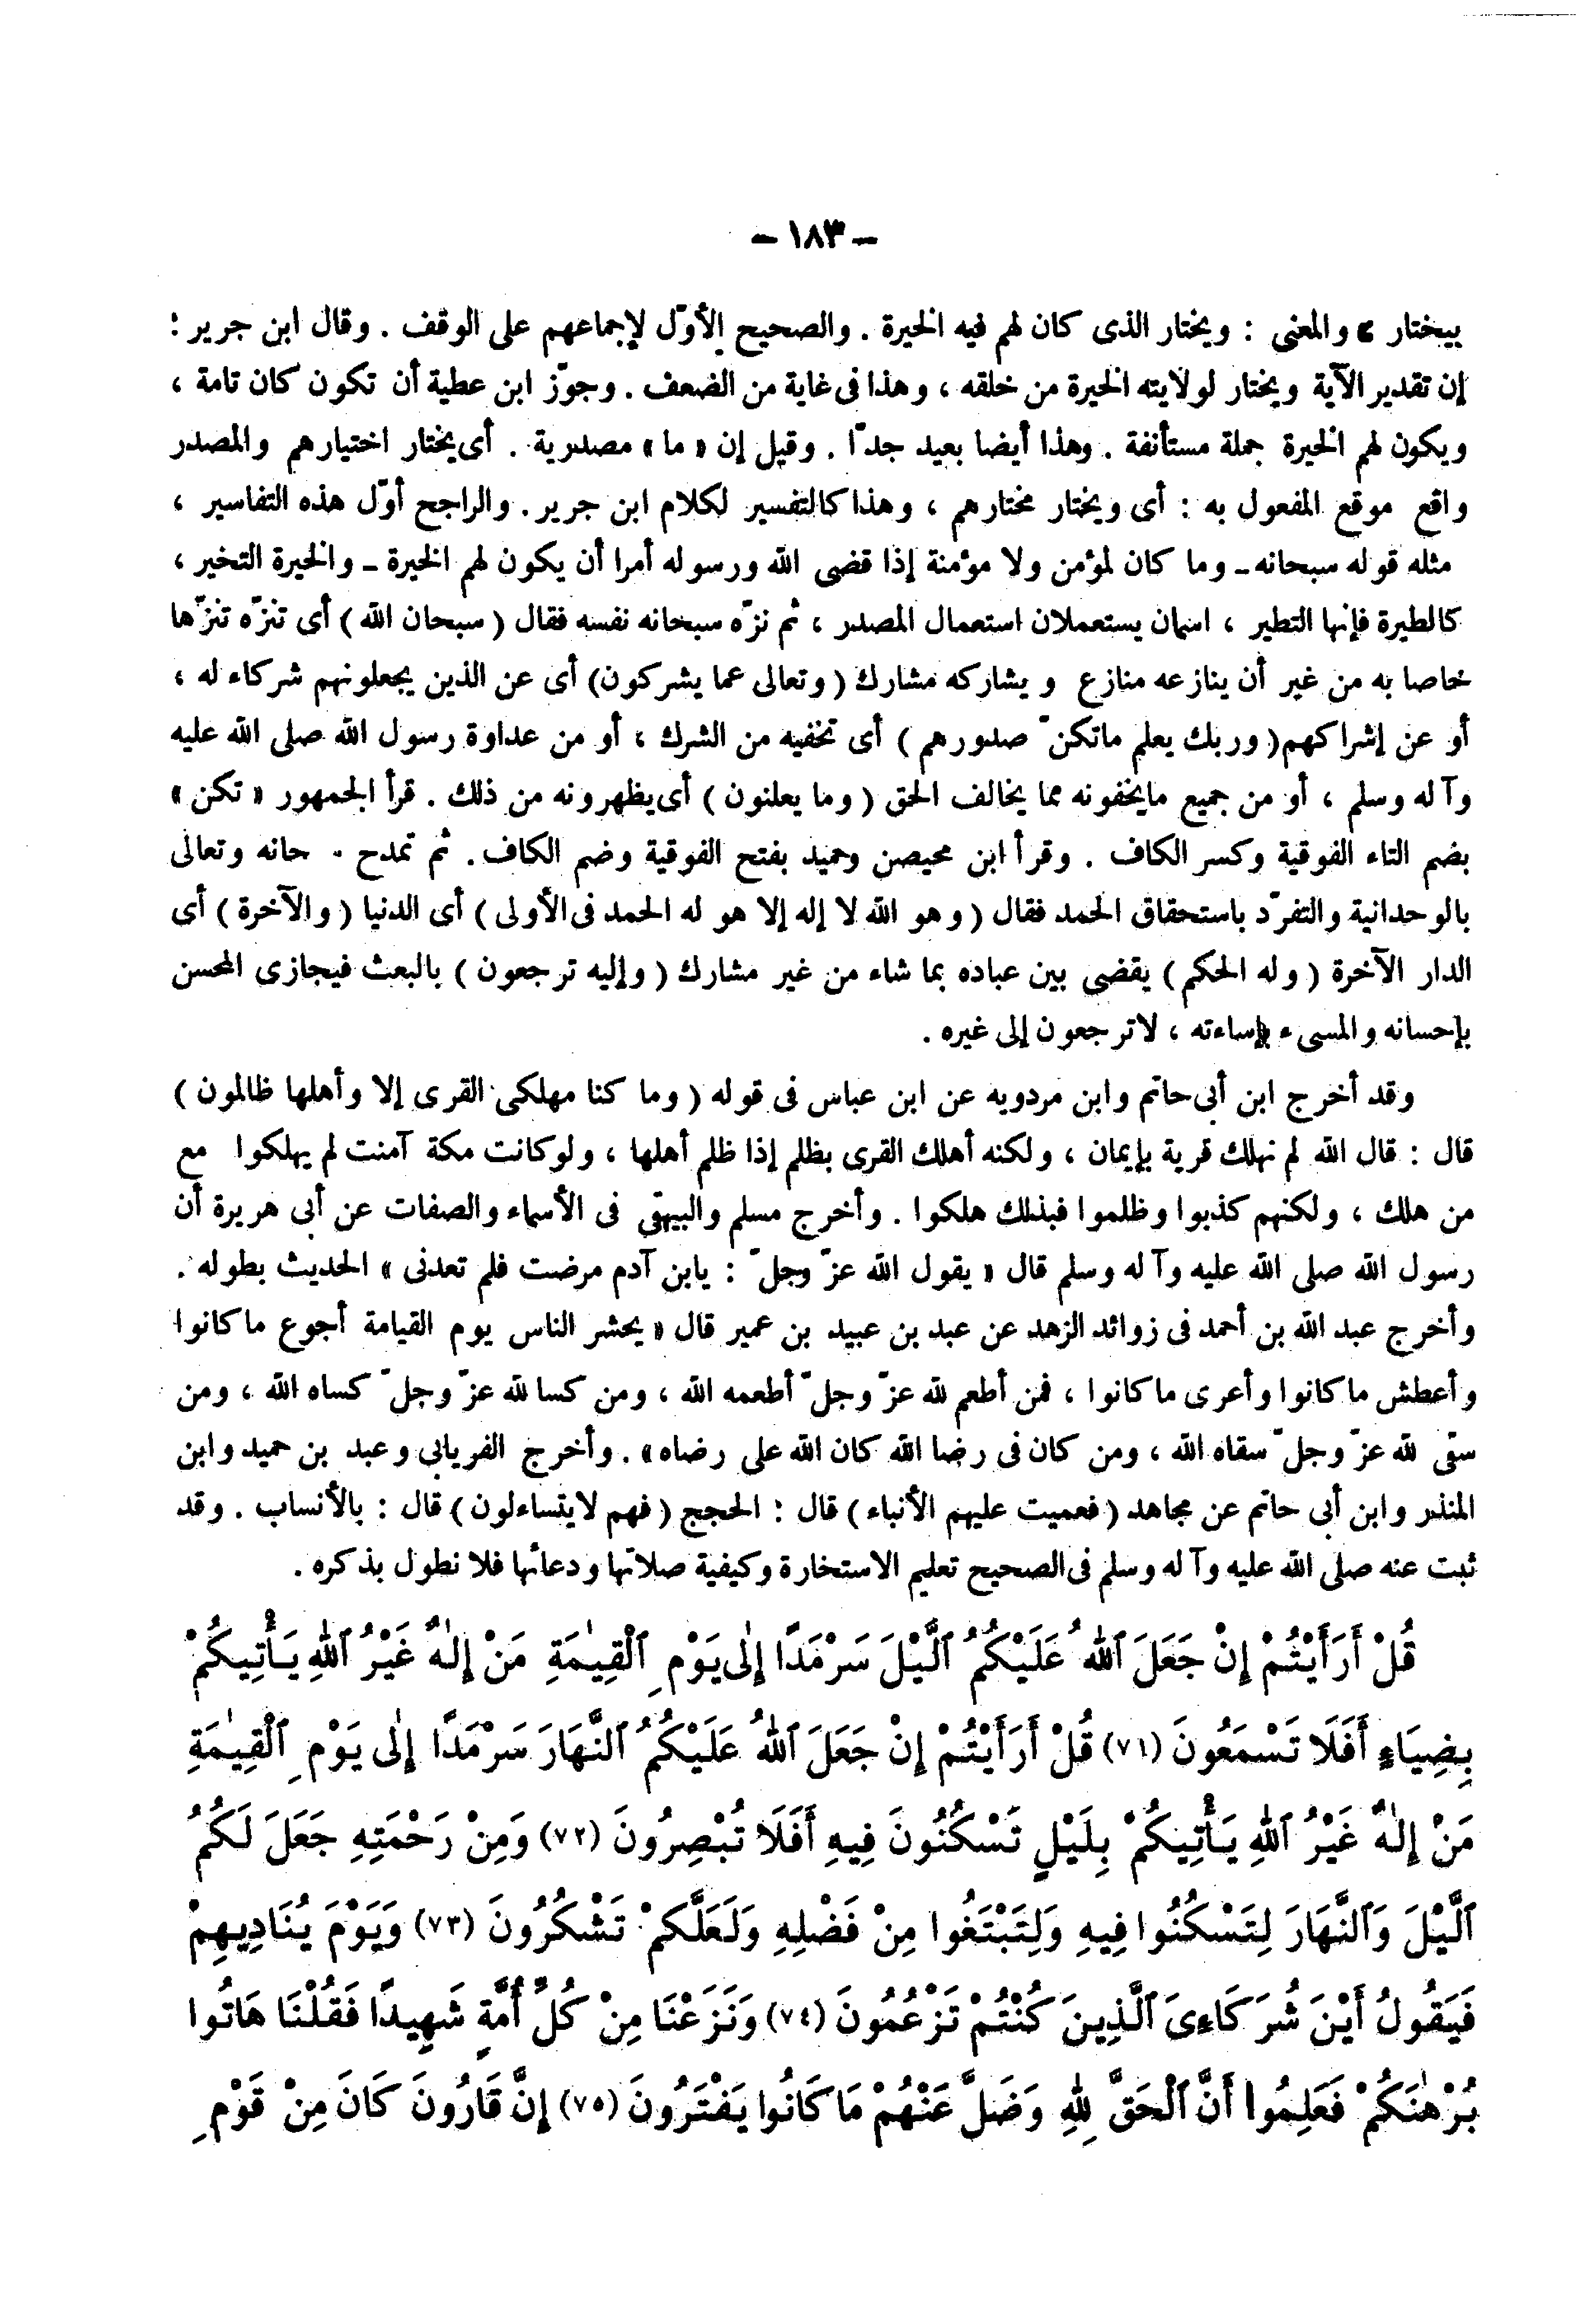 – ١٨٣ –
بيختار » والمعنى : ويختار الذى كان لهم فيه الخيرة . والصحيح الأوّل لإجماعهم على الوقف . وقال ابن جرير :
إن تقدير الآية ويختار لولايته الخيرة من خلقه ، وهذا فى غاية من الضعف . وجوّز ابن عطية أن تكون كان تامة ،
ويكون لهم الخيرة جملة مستأنفة . وهذا أيضا بعيد جدّا . وقيل إن « ما » مصدرية . أى يختار اختيارهم والمصدر
واقع موقع المفعول به : أى ويختار مختارهم ، وهذا كالتفسير لكلام ابن جرير . والراجح أوّل هذه التفاسير ،
مثله قوله سبحانه ـ وما كان لمؤمن ولا مؤمنة إذا قضى الله ورسوله أمرا أن يكون لهم الخيرة ـ والخيرة التخير ،
كالطيرة فإنها التطير ، اسمان يستعملان استعمال المصدر ، ثم نزّه سبحانه نفسه فقال ( سبحان الله ) أى تنزّه تنزّها
خاصا به من غير أن ينازعه منازع و يشاركه مشارك ( وتعالى عما يشركون) أى عن الذين يجعلونهم شركاء له ،
أو عن إشراكهم( وربك يعلم ماتكنّ صدورهم ) أى تخفيه من الشرك ، أو من عداوة رسول الله صلى الله عليه
وآله وسلم ، أو من جميع مايخفونه مما يخالف الحق ( وما يعلنون ) أى يظهرونه من ذلك . قرأ الجمهور « تكن »
بضم التاء الفوقية وكسر الكاف . وقرأ ابن محيصن وحميد بفتح الفوقية وضم الكاف . ثم تمدح حانه وتعالى
بالوحدانية والتفرّد باستحقاق الحمد فقال ( وهو الله لا إله إلا هو له الحمد فى الأولى ) أى الدنيا ( والآخرة ) أى
الدار الآخرة ( وله الحكم ) يقضى بين عباده بما شاء من غير مشارك ( وإليه ترجعون ) بالبعث فيجازى المحسن
بإحسانه والمسىء بإساءته ، لاترجعون إلى غيره .
وقد أخرج ابن أبى حاتم وابن مردويه عن ابن عباس فى قوله ( وما كنا مهلكى القرى إلا وأهلها ظالمون )
قال : قال الله لم نهلك قرية بإيمان ، ولكنه أهلك القرى بظلم إذا ظلم أهلها ، ولو كانت مكة آمنت لم يهلكوا مع
من هلك ، ولكنهم كذبوا وظلموا فبذلك هلكوا . وأخرج مسلم والبيهقى فى الأسماء والصفات عن أبى هريرة أن
رسول الله صلى الله عليه وآله وسلم قال « يقول الله عزّ وجلّ : يابن آدم مرضت فلم تعدنى » الحديث بطوله .
وأخرج عبد الله بن أحمد فى زوائد الزهد عن عبد بن عبيد بن عمير قال « يحشر الناس يوم القيامة أجوع ما كانوا
وأعطش ما كانوا وأعرى ما كانوا ، فمن أطعم لله عزّ وجلّ أطعمه الله ، ومن كسا لله عزّ وجلّ كساه الله ، ومن
سقى لله عزّ وجلّ سقاه الله ، ومن كان فى رضا الله كان الله على رضاه » . وأخرج الفريابى وعبد بن حميد وابن
المنذر وابن أبى حاتم عن مجاهد ( فعميت عليهم الأنباء ) قال : الحجج ( فهم لايتساءلون ) قال : بالأنساب . وقد
ثبت عنه صلى الله عليه وآله وسلم فى الصحيح تعليم الاستخارة وكيفية صلاتها ودعائها فلا نطول بذكره .
قُلْ أَرَأَيْتُمْ إِنْ جَعَلَ ٱللهُ عَلَيْكُمُ ٱلَّيْلَ سَرْمَدًا إِلٰى يَوْمِ ٱلْقِيٰمَةِ مَنْ إِلٰهٌ غَيْرُ ٱللهِ يَأْتِيكُمْ
بِضِيَاءٍ أَفَلَا تَسْمَعُونَ (٧١) قُلْ أَرَأَيْتُمْ إِنْ جَعَلَ ٱللهُ عَلَيْكُمُ ٱلنَّهَارَ سَرْمَدًا إِلٰى يَوْمِ ٱلْقِيٰمَةِ
مَنْ إِلٰهٌ غَيْرُ ٱللهِ يَأْتِيكُمْ بِلَيْلٍ تَسْكُنُونَ فِيهِ أَفَلَا تُبْصِرُونَ (٧٢) وَمِنْ رَحْمَتِهِ جَعَلَ لَكُمُ
ٱلَّيْلَ وَٱلنَّهَارَ لِتَسْكُنُوا فِيهِ وَلِتَبْتَغُوا مِنْ فَضْلِهِ وَلَعَلَّكُمْ تَشْكُرُونَ (٧٣) وَيَوْمَ يُنَادِيهِمْ
فَيَقُولُ أَيْنَ شُرَكَاءِىَ ٱلَّذِينَ كُنْتُمْ تَزْعُمُونَ (٧٤) وَنَزَعْنَا مِنْ كُلِّ أُمَّةٍ شَهِيدًا فَقُلْنَا هَاتُوا
بُرْهٰنَكُمْ فَعَلِمُوا أَنَّ ٱلْحَقَّ لِلهِ وَضَلَّ عَنْهُمْ مَا كَانُوا يَفْتَرُونَ (٧٥) إِنَّ قَارُونَ كَانَ مِنْ قَوْمِ